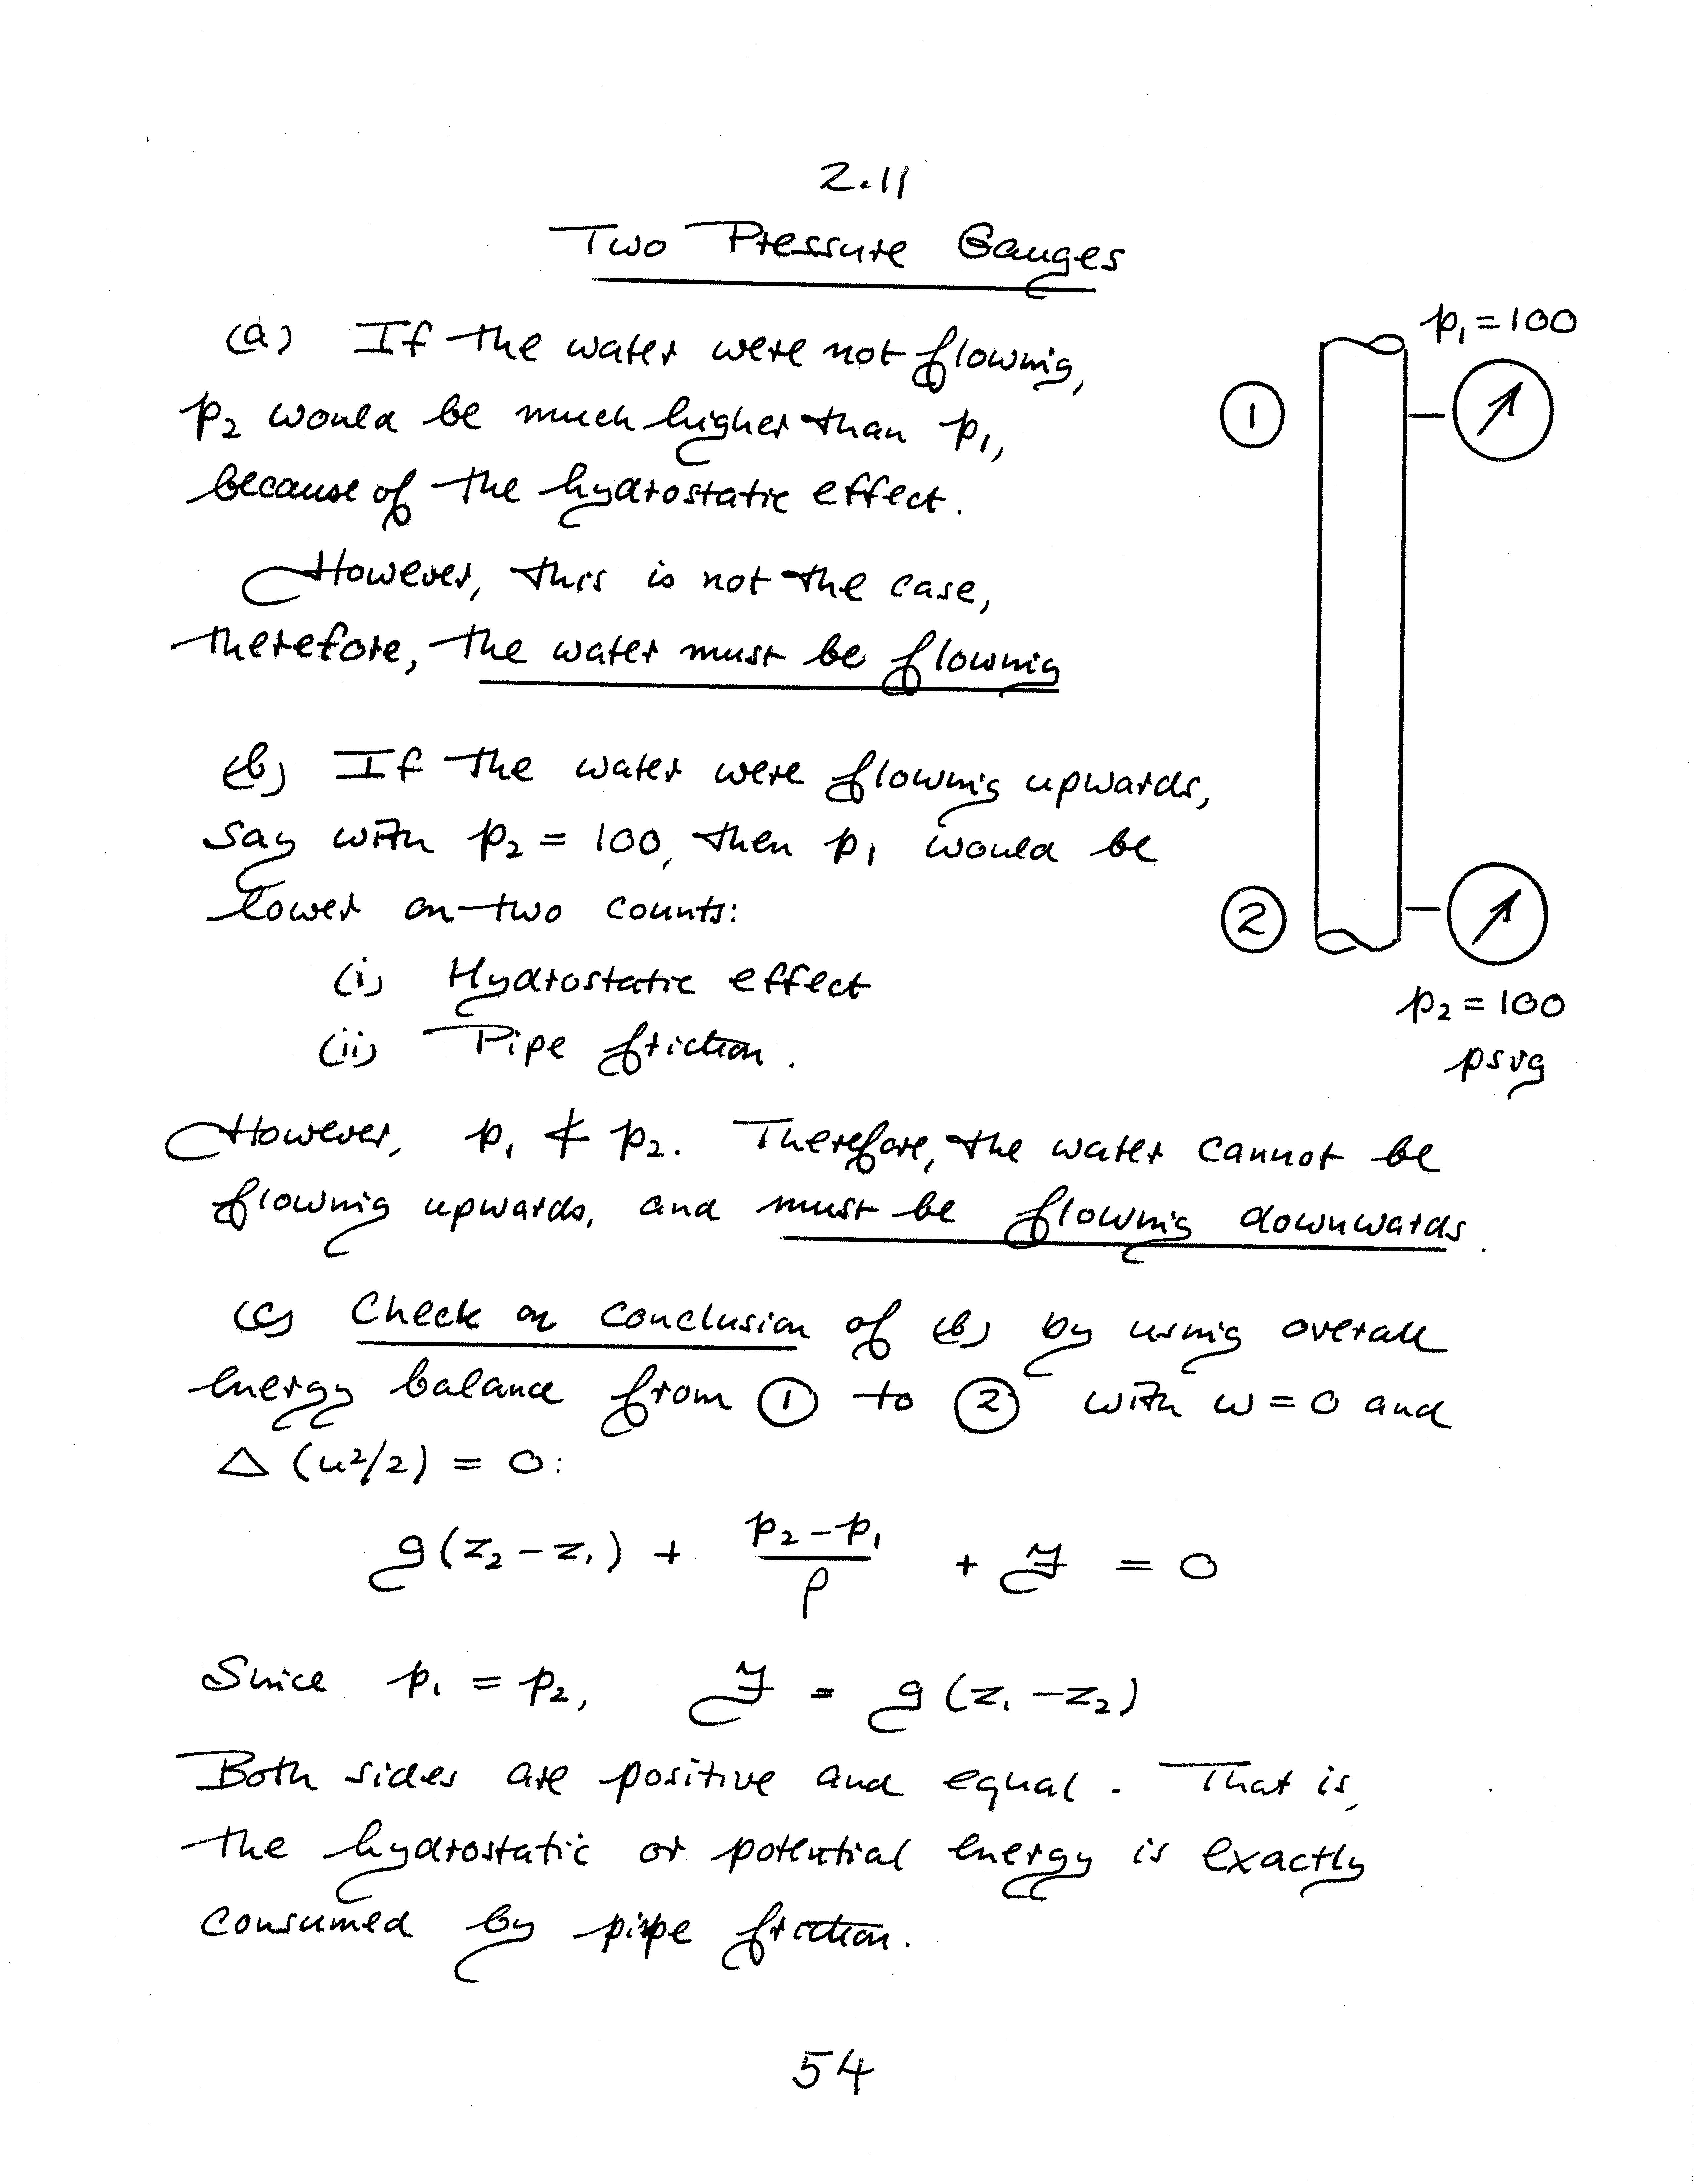 2.11
Two Pressure Gauges
(a) If the water were not flowing,
p₂ would be much higher than p₁,
because of the hydrostatic effect.
However, this is not the case,
therefore, the water must be flowing
p₁ = 100
①
②
p₂ = 100
psig
(b) If the water were flowing upwards,
say with p₂ = 100, then p₁ would be
lower on two counts:
(i) Hydrostatic effect
(ii) Pipe friction.
However, p₁ ≮ p₂. Therefore, the water cannot be
flowing upwards, and must be flowing downwards.
(c) Check on conclusion of (b) by using overall
energy balance from ① to ② with w = 0 and
Δ (u²/2) = 0:
g(z₂ − z₁) + (p₂ − p₁)/ρ + ℱ = 0
Since p₁ = p₂, ℱ = g(z₁ − z₂)
Both sides are positive and equal. That is,
the hydrostatic or potential energy is exactly
consumed by pipe friction.
54